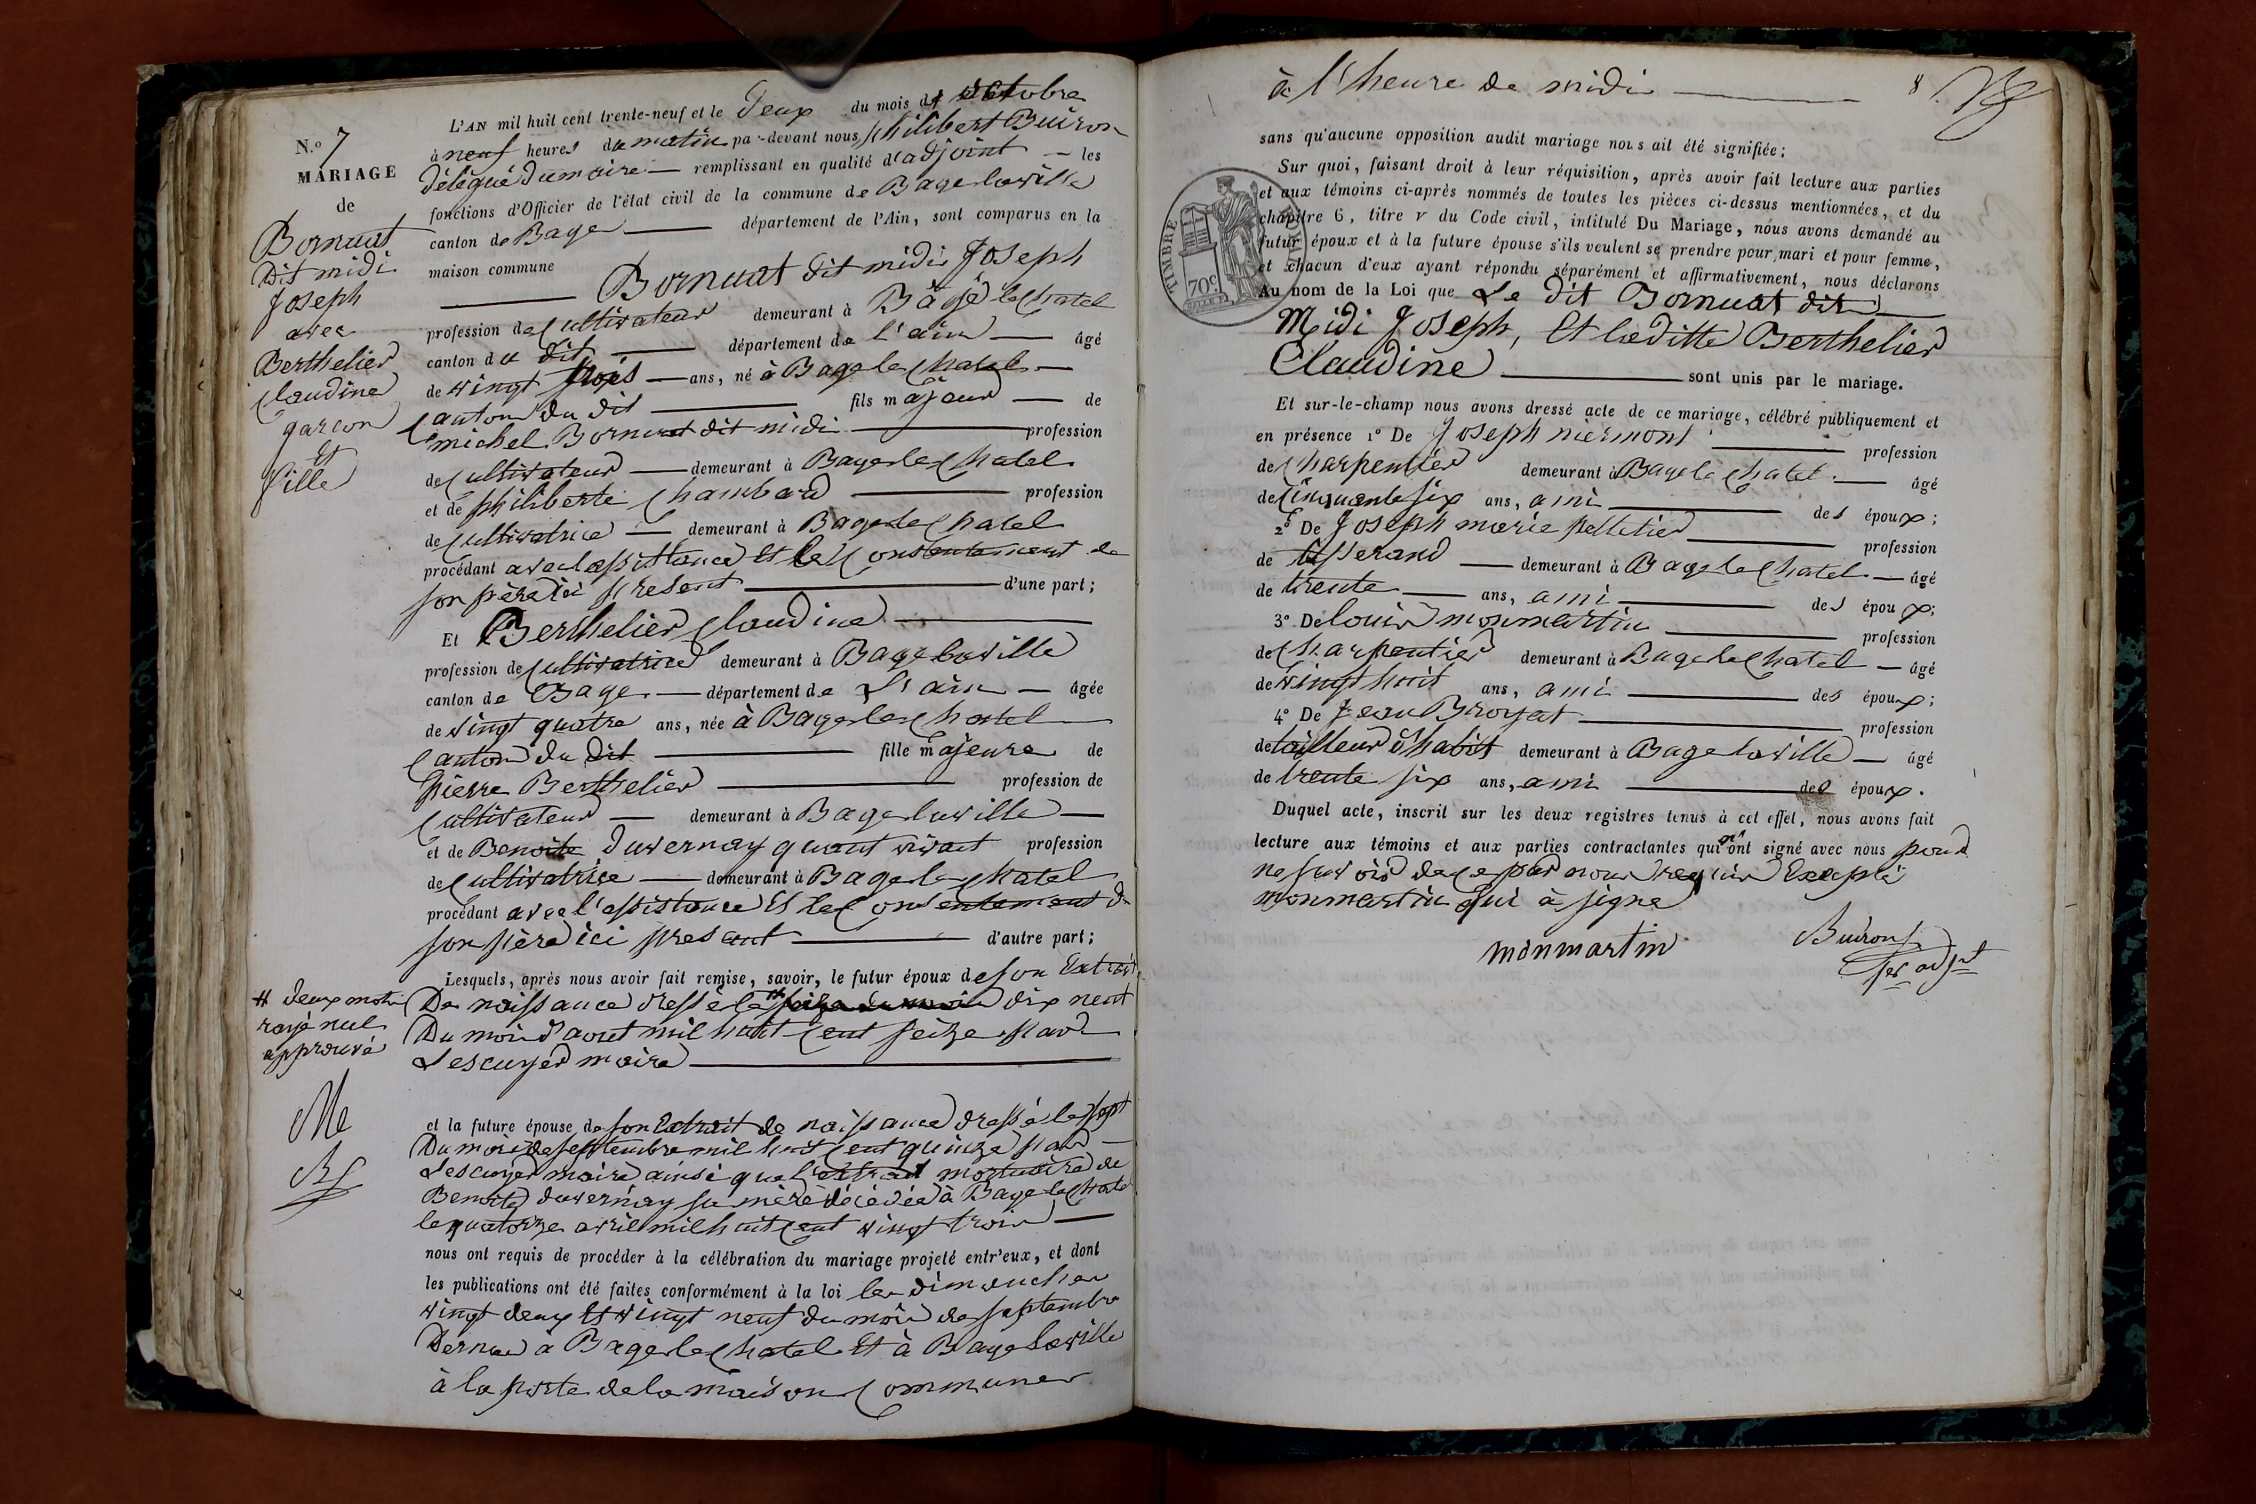 N.o 7
MARIAGE
de
Bornuat
Dit midi
Joseph
avec
Berthelier
Claudine
garcon
Et
fille
L'AN mil huit cent trente-neuf et le Deux du mois d' octobre
à neuf heures du matin par-devant nous philibert Buiron
délégué du maire — remplissant en qualité d'adjoint — les
fonctions d'Officier de l'état civil de la commune de Bage la ville
canton de Bage — département de l'Ain, sont comparus en la
maison commune Bornuat dit midi Joseph
profession de Cultivateur demeurant à Bâgé le Chatel
canton du dit — département de l'ain — âgé
de vingt trois — ans, né à Bage le Chatel —
Canton du dit — fils majeur — de
michel Bornuat dit midi — profession
de Cultivateur — demeurant à Bage le Chatel
et de philiberte Chambard — profession
de Cultivatrice — demeurant à Bage le Chatel
procédant avec l'assistance Et le Consentement de
son père ici présent — d'une part;
Et Berthelier Claudine —
profession de Cultivatrice demeurant à Bage la ville
canton de Bage — département de L'ain — âgée
de vingt quatre ans, née à Bage le Chatel
Canton du dit — fille majeure de
pierre Berthelier — profession de
Cultivateur — demeurant à Bage la ville —
et de Benoite Duvernay quant vivait profession
de Cultivatrice — demeurant à Bage le Chatel
procédant avec l'assistance Et le Consentement de
son père ici présent — d'autre part;
Lesquels, après nous avoir fait remise, savoir, le futur époux de son Extrait
De naissance dressé le # seize du mois dix neuf
Du mois d'aout mil huit Cent seize par
Lescuyer maire —
# deux mots
rayé nul
approuvé
et la future épouse de son Extrait de naissance dressé le sept
Du mois de septembre mil huit Cent quinze par —
Lescuyer maire ainsi que l'extrait mortuaire de
Benoite duvernay sa mère décédée à Bage le Chatel
le quatorze avril mil huit Cent vingt trois —
nous ont requis de procéder à la célébration du mariage projeté entr'eux, et dont
les publications ont été faites conformément à la loi les dimanches
vingt deux Et vingt neuf du mois de septembre
Dernier à Bage le Chatel Et à Bage la ville
à la porte de la maison Commune
à l'heure de midi — 8
sans qu'aucune opposition audit mariage nous ait été signifiée;
Sur quoi, faisant droit à leur réquisition, après avoir fait lecture aux parties
et aux témoins ci-après nommés de toutes les pièces ci-dessus mentionnées, et du
chapitre 6, titre v du Code civil, intitulé Du Mariage, nous avons demandé au
futur époux et à la future épouse s'ils veulent se prendre pour mari et pour femme,
et chacun d'eux ayant répondu séparément et affirmativement, nous déclarons
Au nom de la Loi que Le dit Bornuat dit —
Midi Joseph, Et la ditte Berthelier
Claudine — sont unis par le mariage.
TIMBRE ROYAL
70c
Et sur-le-champ nous avons dressé acte de ce mariage, célébré publiquement et
en présence 1º De Joseph niermont — profession
de Charpentier demeurant à Bage le Chatel — âgé
de Cinquante six ans, ami — des époux;
2º De Joseph marie pelletier — profession
de tisserand — demeurant à Bage le Chatel — âgé
de trente — ans, ami — des époux;
3º De louis monmartin — profession
de Charpentier demeurant à Bage le Chatel — âgé
de vingt huit ans, ami — des époux;
4º De Jean Broyat — profession
de tailleur d'habits demeurant à Bage la ville — âgé
de trente six ans, ami — des époux.
Duquel acte, inscrit sur les deux registres tenus à cet effet, nous avons fait
lecture aux témoins et aux parties contractantes qui n'ont signé avec nous pour
ne savoir de ce par nous requis Excepté
monmartin qui à signé
monmartin Buiron
1er adjt